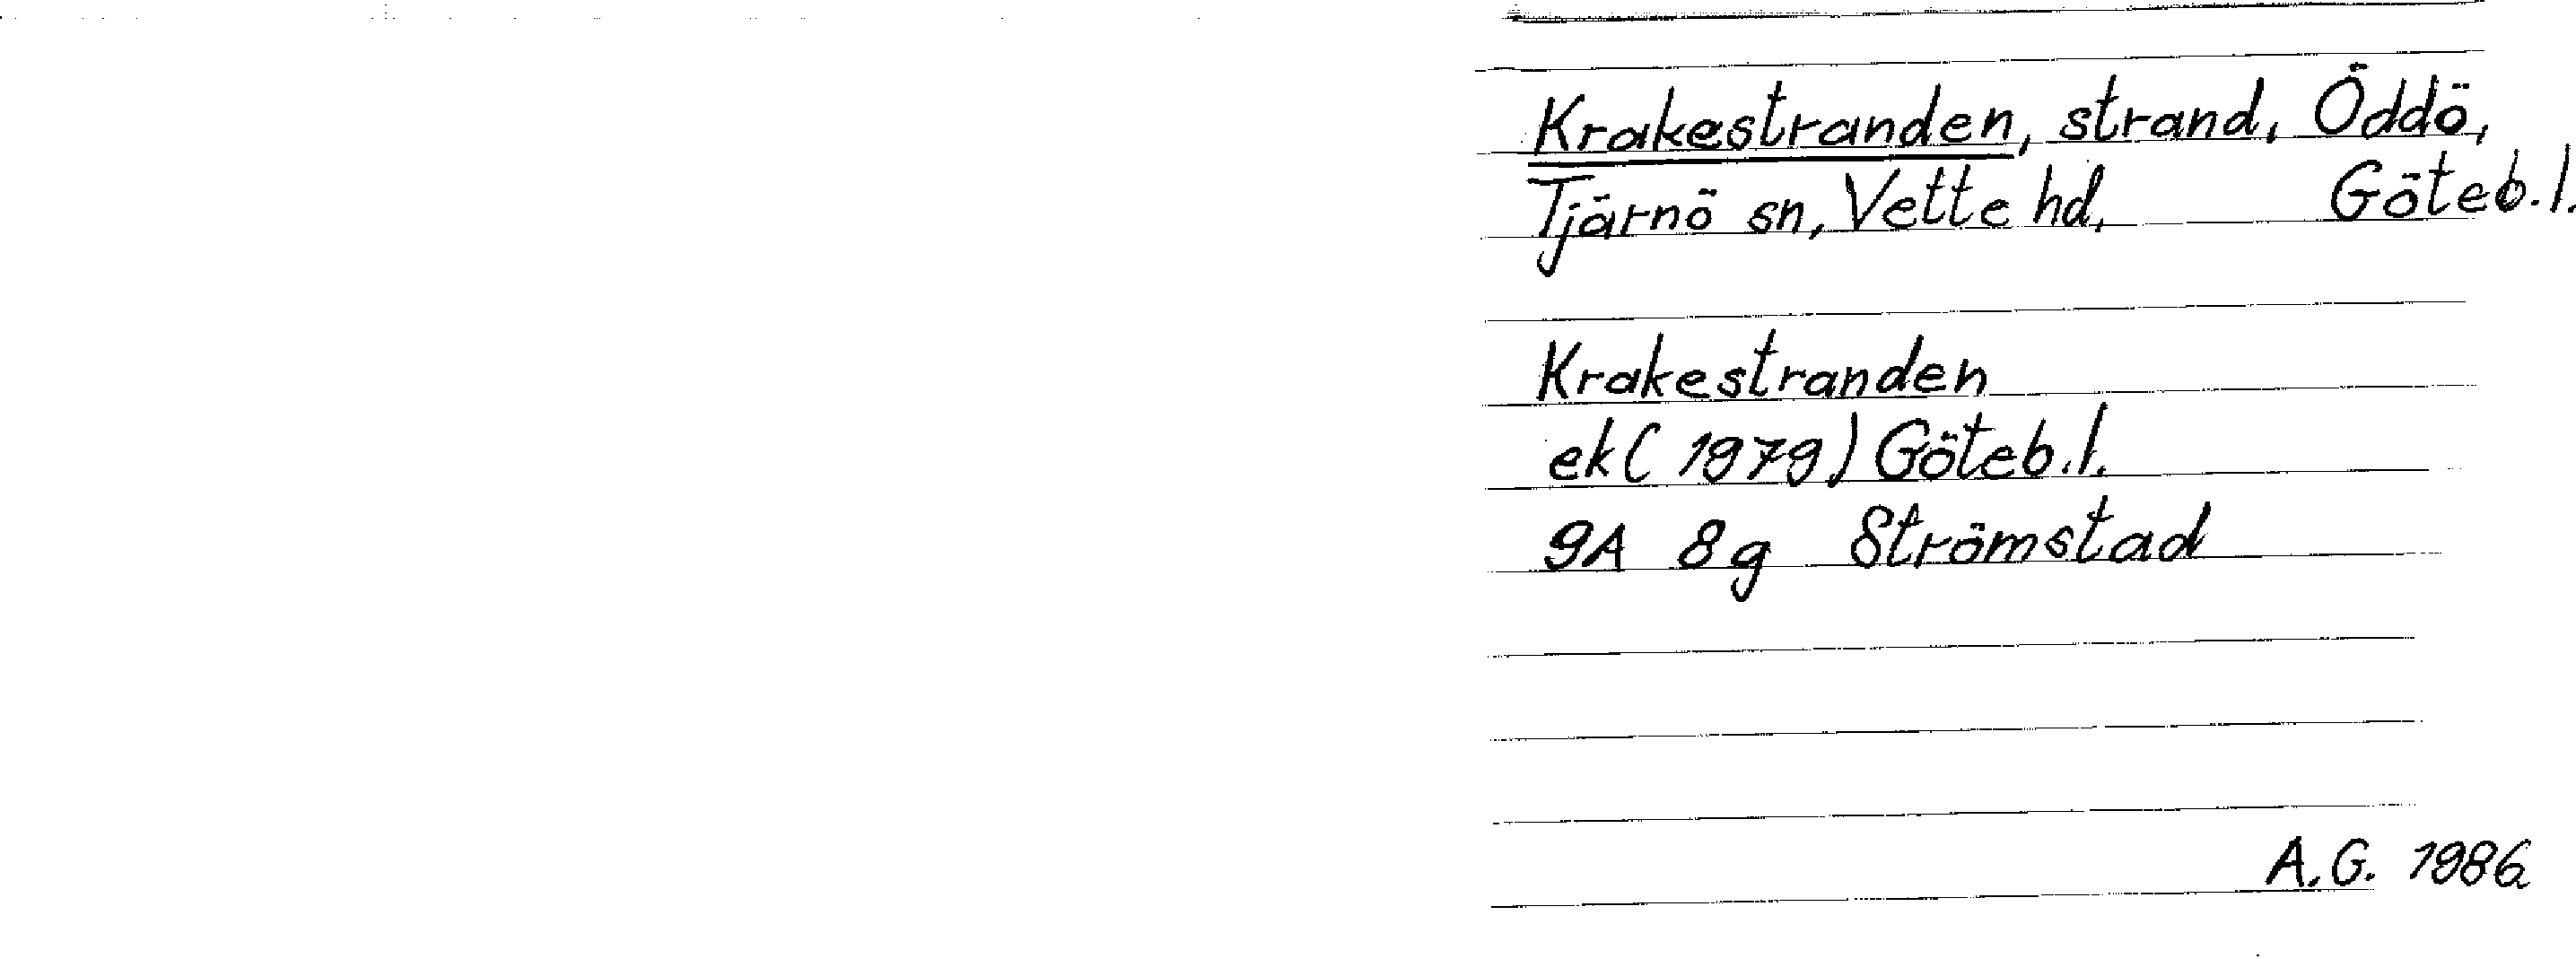 Krakestranden, strand, Öddö,
Tjärnö sn, Vette hd, Göteb.l.
Krakestranden
ek (1979) Göteb.l.
9A 8g Strömstad
A.G. 1986